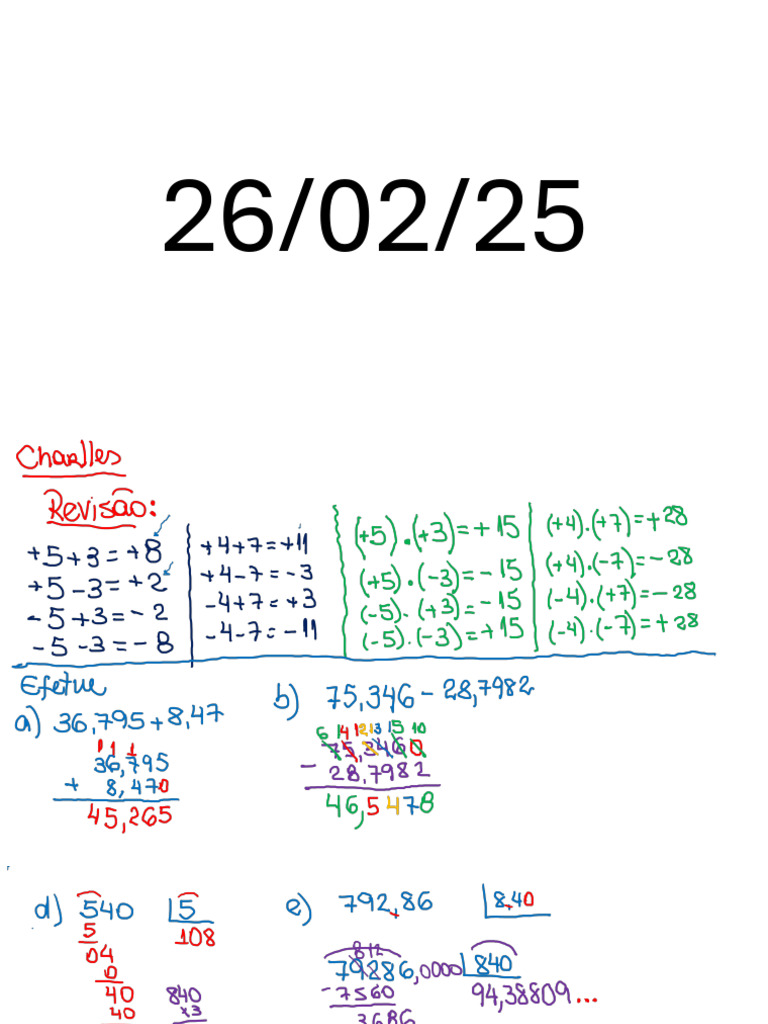 26/02/25
Charlles
Revisão:
+5+3=+8
+5-3=+2
-5+3=-2
-5-3=-8
+4+7=+11
+4-7=-3
-4+7=+3
-4-7=-11
(+5).(+3)=+15
(+5).(-3)=-15
(-5).(+3)=-15
(-5).(-3)=+15
(+4).(+7)=+28
(+4).(-7)=-28
(-4).(+7)=-28
(-4).(-7)=+28
Efetue
a) 36,795+8,47
1 1 1
36,795
+ 8,470
45,265
b) 75,346-28,7982
6 14 12 13 15 10
75,3460
- 28,7982
46,5478
d) 540 5
5 108
04
0
40
40
e) 792,86 8,40
8 12
79286,0000 840
-7560 94,38809...
3686
840
x3